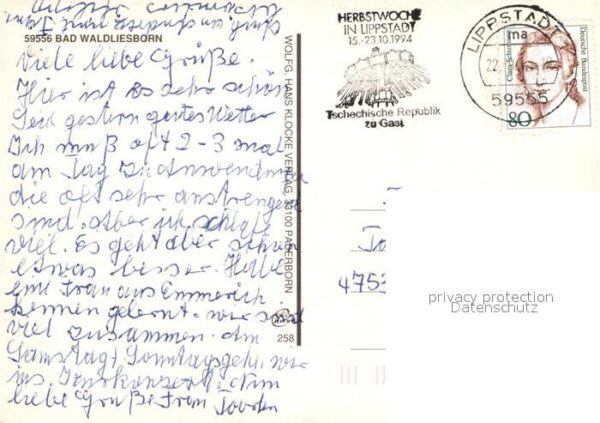 59556 BAD WALDLIESBORN
Viele liebe Grüße.
Hier ist es sehr schön
Seid gestern gutes Wetter
Ich muß oft 2-3 mal
am Tag zu Anwendungen
die oft sehr anstrengend
sind. Aber ich schlafe
viel. Es geht aber schon
etwas besser. Habe
eine Frau aus Emmerich
kennen gelernt. wir sind
viel zusammen. Am
Samstag + Sonntag gehn wir
ins
liebe Grüße Frau
WOLFG. HANS KLOCKE VERLAG, 33100 PADERBORN
258
HERBSTWOCHE
IN LIPPSTADT
15.-23.10.1994
Tschechische Republik
zu Gast
LIPPSTADT
ma
22.
59555
Clara Schumann
Deutsche Bundespost
80
4753
privacy protection
Datenschutz